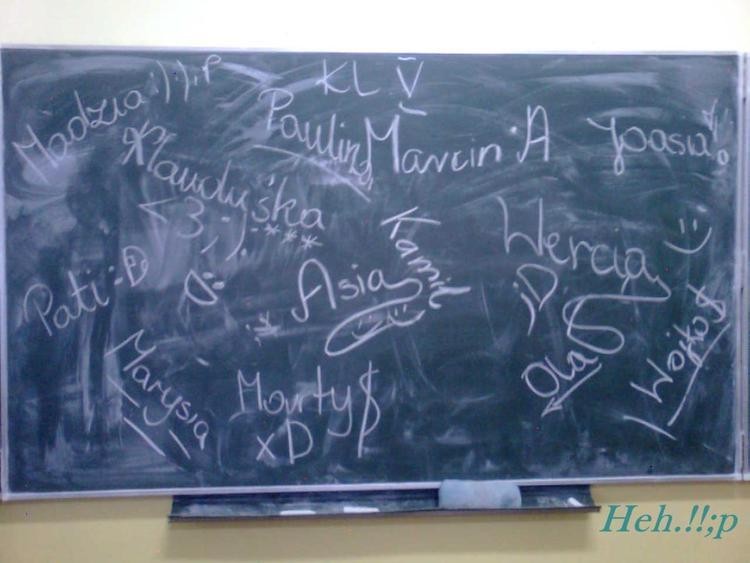 KL V
Madzia :)) ;P
Paulina
Marcin :A
Joasia!
Klauduśka
<3 ;) ****
Kamil
Wercia :)
Pati :D
Asia
;*
;D
Ola
Marysia
Marty$
xD
Heh.!!;p